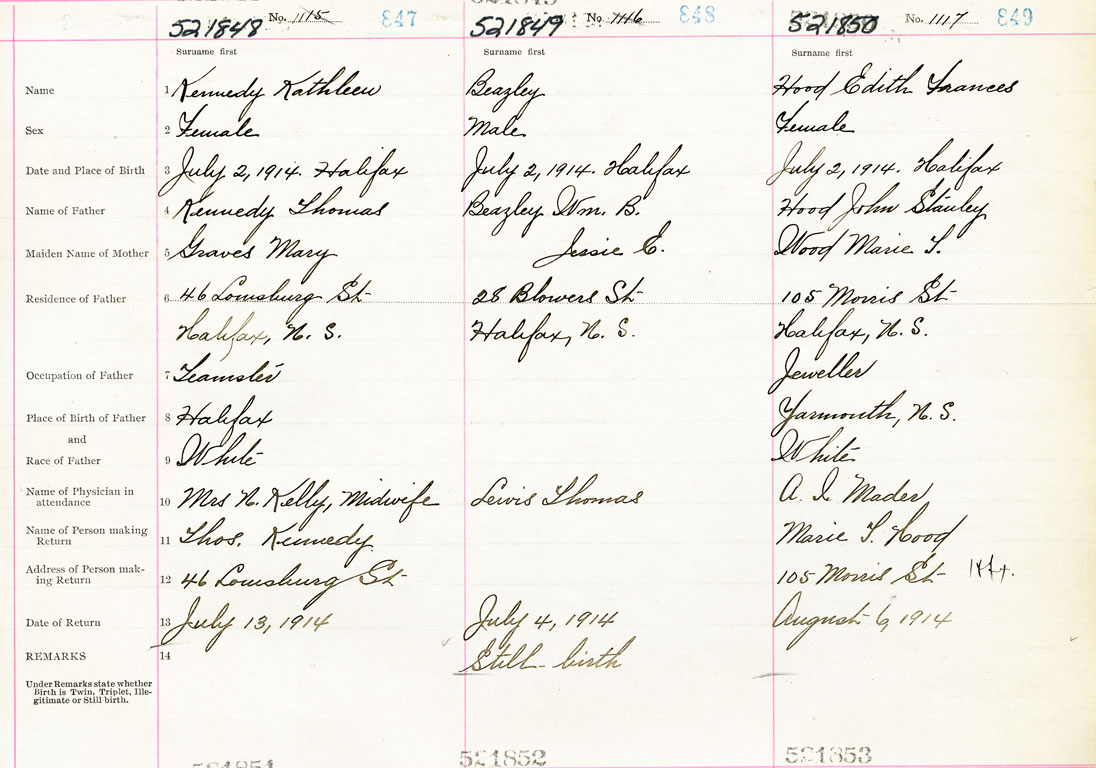 521848 No. 1115 847 521849 No. 1116 848 521850 No. 1117 849
Surname first Surname first Surname first
Name 1 Kennedy Kathleen Beazley Hood Edith Frances
Sex 2 Female Male Female
Date and Place of Birth 3 July 2, 1914. Halifax July 2, 1914. Halifax July 2, 1914. Halifax
Name of Father 4 Kennedy Thomas Beazley Wm. B. Hood John Stanley
Maiden Name of Mother 5 Graves Mary Jessie E. Wood Marie T.
Residence of Father 6 46 Louisburg St 28 Blowers St 105 Morris St
Halifax, N. S. Halifax, N. S. Halifax, N. S.
Occupation of Father 7 Teamster Jeweller
Place of Birth of Father 8 Halifax Yarmouth, N. S.
and
Race of Father 9 White White
Name of Physician in
attendance 10 Mrs N. Kelly, Midwife Lewis Thomas A. I. Mader
Name of Person making
Return 11 Thos. Kennedy Marie T. Hood
Address of Person mak-
ing Return 12 46 Louisburg St 105 Morris St Hfx.
Date of Return 13 July 13, 1914 July 4, 1914 August 6, 1914
REMARKS 14 Still-birth
Under Remarks state whether
Birth is Twin, Triplet, Ille-
gitimate or Still birth.
521851 521852 521853